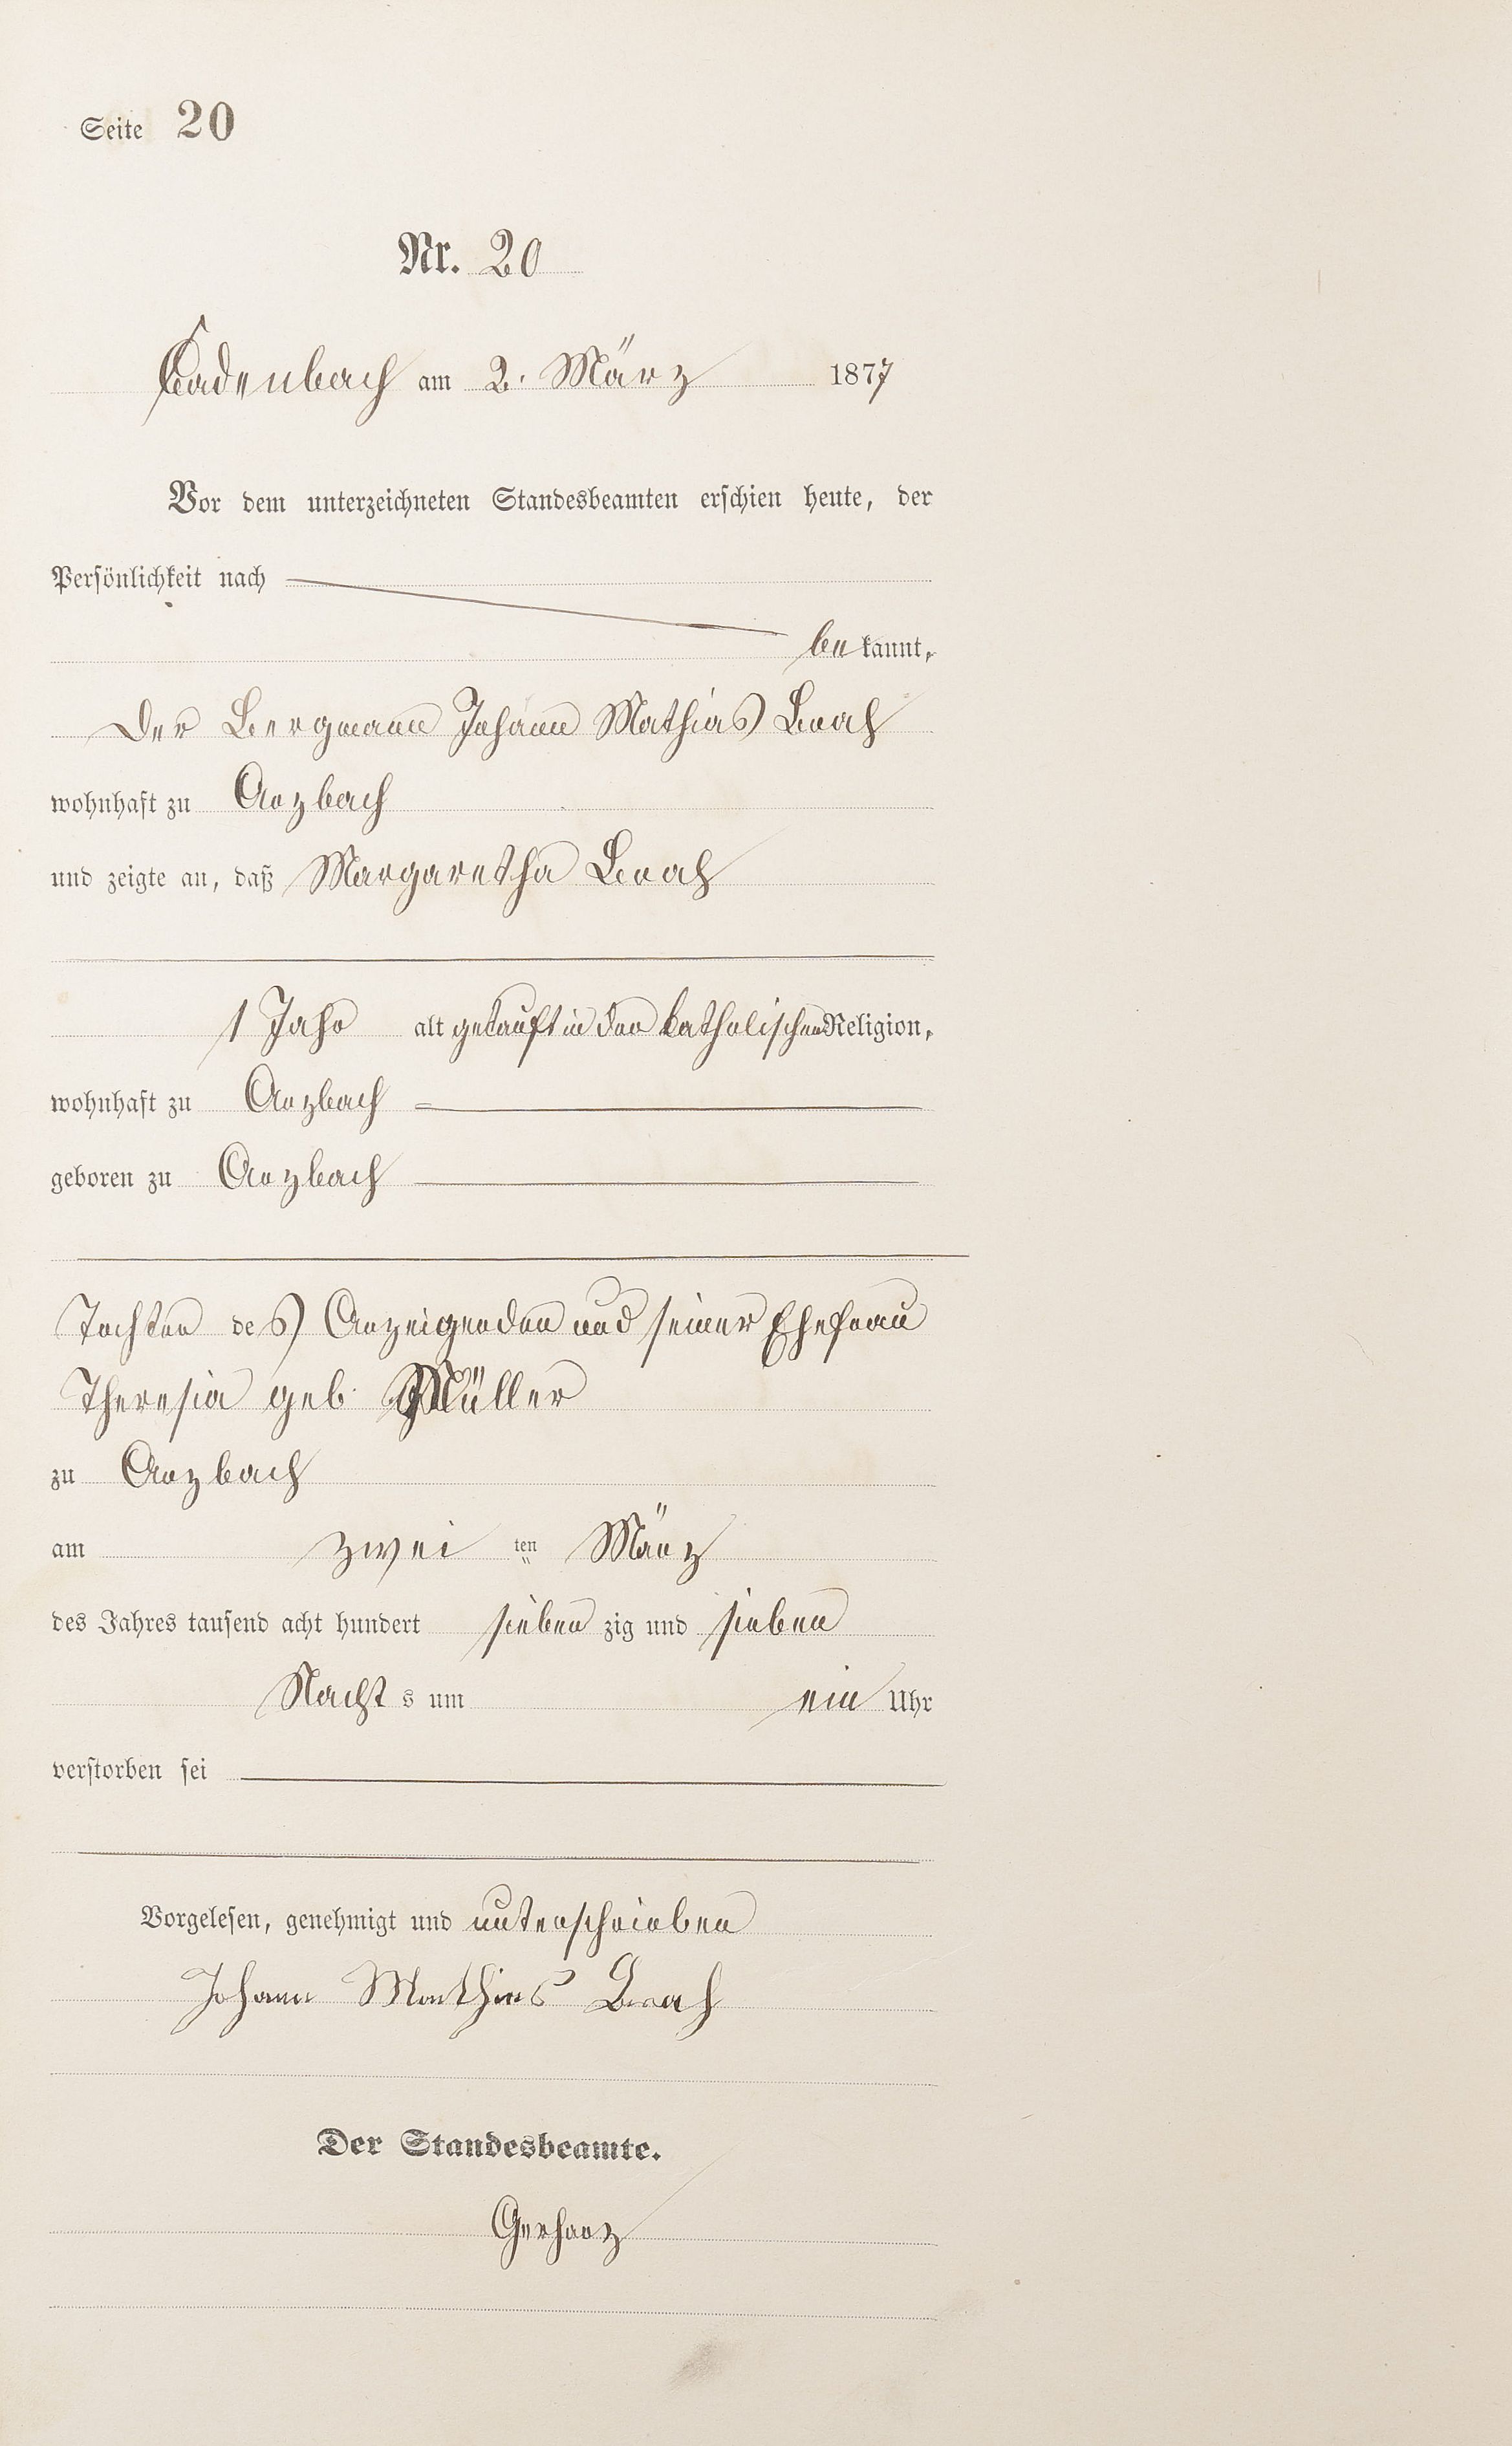 Seite 20
Nr. 20
Cadenbach am 2. März 1877
Vor dem unterzeichneten Standesbeamten erschien heute, der
Persönlichkeit nach
bekannt,
der Bergmann Johann Mathias Brach
wohnhaft zu Arzbach
und zeigte an, daß Margaretha Brach
1 Jahr alt getauft in der katholischen Religion,
wohnhaft zu Arzbach
geboren zu Arzbach
Tochter des Anzeigenden und seiner Ehefrau
Theresia geb. Müller
zu Arzbach
am zwei ten März
des Jahres tausend acht hundert sieben zig und sieben
Nacht s um ein Uhr
verstorben sei
Vorgelesen, genehmigt und unterschrieben
Johann Mathias Brach
Der Standesbeamte.
Gerharz